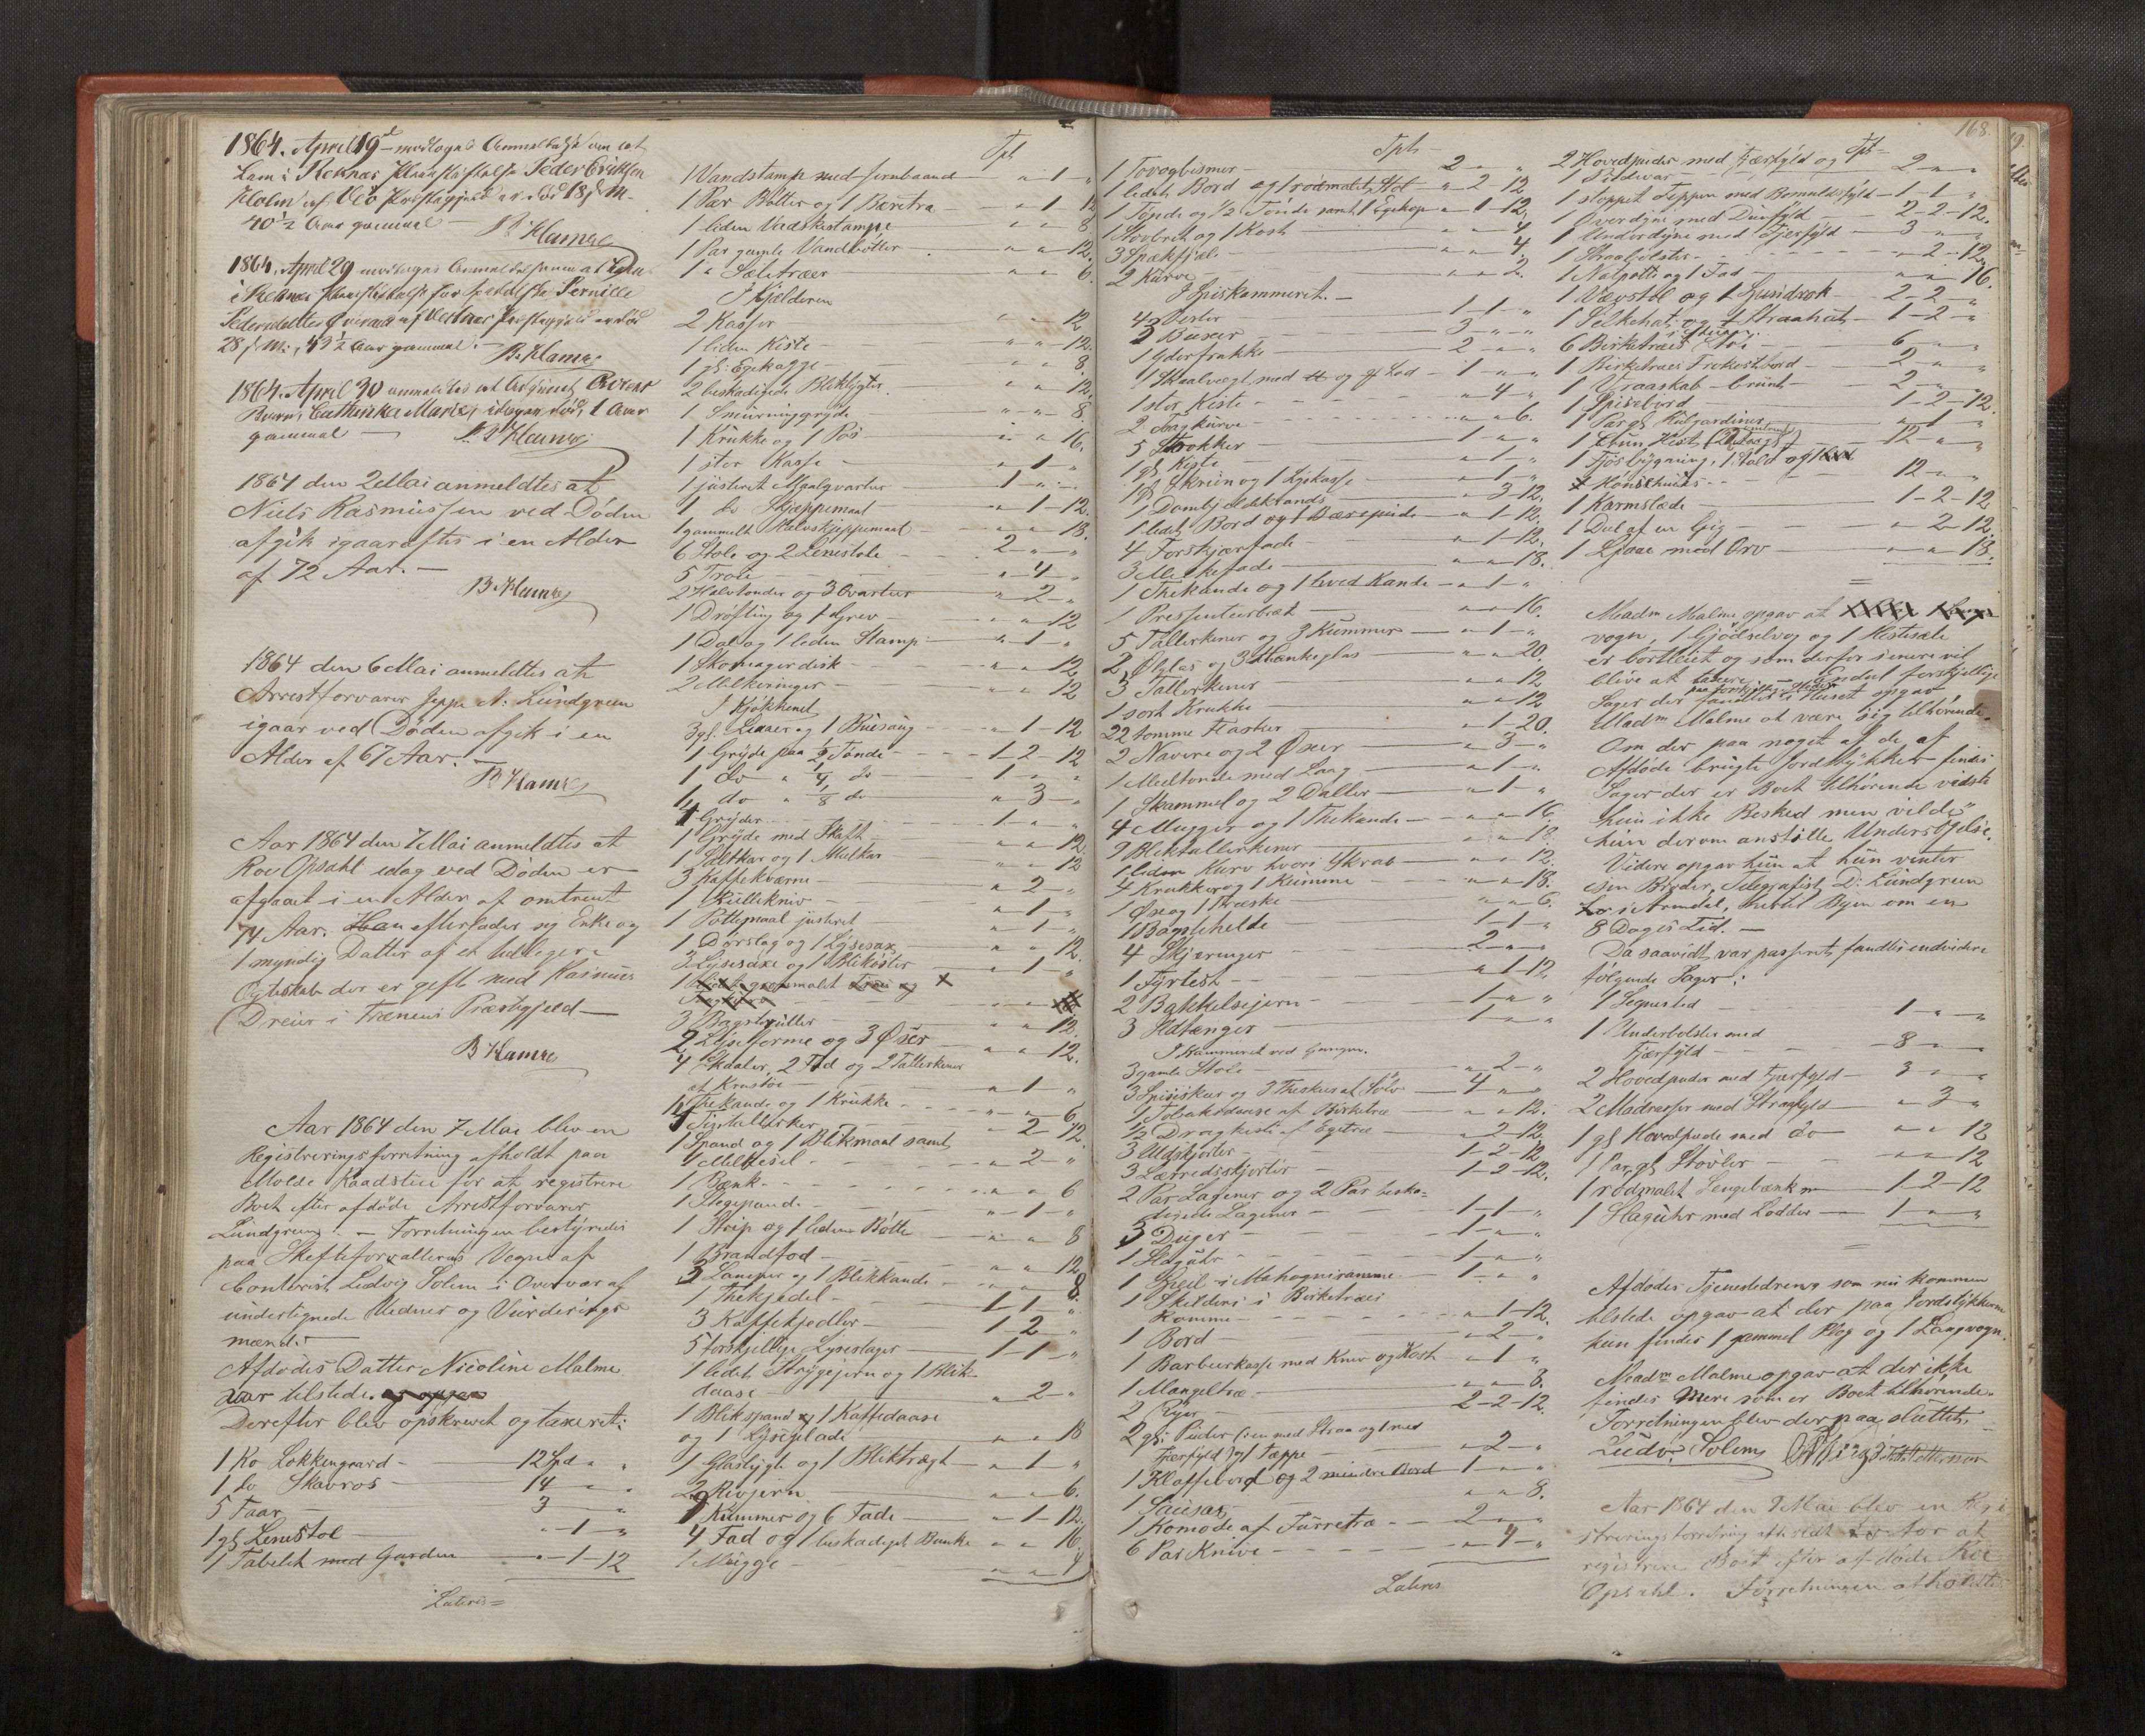 1864. April 19de modtoges Anmeldelse om at
Lem i Reknæs Pleiestiftelse Peder Eriksen
Holm af Veö Præstegjeld er død 18 d. M.
40 1/2 Aar gammel
B. Hamre
1864. April 29 modtoges Anmeldelse om at Lem
i Reknæs Pleiestiftelse for Spedalske Pernille
Pedersdatter af Præstegjeld er død
28 d. M., 43 1/2 Aar gammel.
B. Hamre
1864. April 30 anmeldtes at
Barn, Cathinka Marie, idag er død, 1 Aar
gammel
B. Hamre
1864 den 2 Mai anmeldtes at
Niels Rasmussen ved Döden
afgik igaaraftes i en Alder
af 72 Aar.
B. Hamre
1864 den 6 Mai anmeldtes at
Arrestforvarer Jeppe N. Lundgreen
igaar ved Døden afgik i en
Alder af 67 Aar.
B. Hamre
Aar 1864 den 7 Mai anmeldtes at
Roe Opsahl idag ved Döden er
afgaaet i en Alder af omtrent
74 Aar. Han efterlader sig Enke og
1 myndig Datter af et tidligere
Ægteskab der er gift med Rasmus
Dreier i Frænens Præstegjeld
B Hamre
Aar 1864 den 7 Mai blev en
Registreringsforretning afholdt paa
Molde Raadstue for at registrere
Boet efter afdöde Arrestforvarer
Lundgreen. Forretningen bestyredes
paa Skifteforvalterens Vegne af
Contorist Ludvig Solem i Overvær af
undertegnede Vidner og Vurderings
mænd.
Afdödes Datter Nicoline Malme
var tilstede.
Derefter blev opskrevet og taxeret:
1 Ko Lokkengaard - 12 Spd " "
1 do Skavros - 14 " "
5 Faar - 3 " "
1 gl Lenestol " - 1 - "
1 Tabelet med Garden " - 1 - 12
Lateris
Spd
1 Vandstamp med Jernbaand " - 1 - "
1 Par Bötter og 1 Bæretræ " - 1 - 12
1 liden Vadskestampe " " 8
1 Par gamle Vandbötter " " 12.
1 " Seletræer " " 6.
I Kjelderen
2 Kasser " " 12
1 liden Kiste " " 12.
1 gl: Egekagge " " 8.
2 beskadigede Bliklygter " " 12.
1 Smurningsgryde " " 8.
1 Krukke og 1 Pös " " 16.
1 stor Kasse " - 1 - "
1 justeret Maalqvarter 1 - " - "
1 do Skjeppemaal " - 1 - 12.
1 gammelt Halvskjeppemaal " " 18.
6 Stole og 2 Lenestole 2 - " - "
5 Troie " - 4 - "
2 Halvtønder og 3 Qvarter " - 2 - "
1 Dröfling og 1 Grev " " 12
1 Dal og 1 liden Stamp " - 1 - "
1 Skomagerdisk " " 12
2 Melkeringer " " 12
I Kjökkenet
3 gl. og 1 " - 1 - 12
1 Gryde paa 1/2 Tønde 1 - 2 - 12
1 do " 1/4 do 1 - " - "
1 do " 1/8 do " - 3 - "
4 Gryder 1 - " - "
1 Gryde med Skaft " " 12.
1 Saltkar og 1 Melkar " " 12
3 Kaffekværne " - 2 - "
1 Rullekniv " - 1 - "
1 Pottemaal justeret " - 1 - "
1 Dørslag og 1 Lysesax " " 12.
2 Lysesaxe og 1 Bliköster " - 1 - "
3 Bagsteruller " " 12.
2 Lyseforme og 3 Øser " " 12.
4 Skaaler, 2 Fad og 2 Tallerkener
af Krustöi " - 1 - "
1 Thekande og 1 Krukke " " 6.
1 Tintallerker " - 2 - 12.
1 Spand og 1 Blikmaal samt
1 Melkesil " - 2 - "
1 Bænk " " 6
1 Stegepande " - 1 - "
1 Stoip og 1 liden Bötte " " 8
1 Brandfod " " 12
3 Lamper og 1 Blikkande " " 8.
1 Thekjedel 1 - 1 - "
3 Kaffekjedler 1 - 2 - "
5 forskjellige Lysestager 1 - 1 - "
1 lidet Strygejern og 1 Blik-
daase " - 2 - "
1 Blikspand og 1 Kaffedaase
og 1 " " 18
1 Glaslygte og 1 Bliktragt " - 1 - "
2 Rivjern " " 6.
9 Kummer og 6 Fade " - 1 - 12.
4 Fad og 1 beskadiget Bunke " " 16.
1 Mugge " " 4
Spd
1 Tovogbismer 2 " "
1 lidet Bord og 1 rødmalet Stol " - 2 - 12
1 Tønde og 1/2 Tønde samt 1 Egekop " - 1 - 12.
1 Stövbret og 1 Kost " " 4.
3 Spækfjæle " " 4.
2 Kurve " " 2.
I Spiskammeret.
4 Vester 1 - 1 - "
3 Buxer 3 - " - "
1 Yderfrakke 2 - " - "
1 Skaalvægt med og Lod 1 - " - "
1 stor Kiste " - 4 - "
2 Fragkurve " " 6.
5 Strokker 1 - " - "
1 gl Kiste " - 1 - "
1 gl Skrin og 1 Lyskasse " - 1 - "
1 " - 3 - 12.
1 lidet Bord og 1 " - 1 - 12.
4 Forskjærfade " - 1 - 12.
3 Melkefade " " 18.
1 Thekande og 1 hvid Kande " - 1 - "
1 Pressenteerbræt " " 16.
5 Tallerkener og 3 Kummer " - 1 - "
2 Ølglas og 3 Hankeglas " " 20.
3 Tallerkener " " 12
1 sort Krukke " " 12
22 tomme Flasker " - 1 - 20.
2 Navere og 2 Øxer " - 3 - "
1 Meeltønde med Laag " - 1 - "
1 Skammel og 2 Daller " - 1 - "
4 Mugger og 1 Thekande " " 16.
9 Bliktallerkener " " 18
1 liden Kurv hvori Skrab " " 12.
4 Krukker og 1 Kumme " " 18.
1 Øse og 1 Træske " " 6.
1 Bagstehelde 1 - 1 - "
4 Skjæringer 2 - " - "
1 Fyrtest " - 1 - 12.
2 Bakkelsejern 1 - " - "
3 Ildtænger 1 - " - "
I Kammeret ved Gangen.
3 gamle Stole " - 2 - "
3 Spiseskeer og 3 Theskeer af Sölv 4 - " - "
1 Tobaksdaase af Birketræ " " 12.
1/2 Dragkiste af Egetræ " - 2 - 12.
3 Uldskjorter 1 - 2 - 12
3 Lærredsskjorter 1 - 2 - 12.
2 Par Lagener og 2 Par beska-
digede Lagener 1 - 1 - "
5 Duger 1 - " - "
1 Uhr 1 - " - "
1 Speil i Mahogniramme 1 - " - "
1 Skilderi i Birketræes
Ramme " - 1 - 12.
1 Bord " - 2 - "
1 Barbeerkasse med Kniv og Kost " - 1 - "
1 Mangeltræ " " 8.
2 Ryer 2 - 2 - 12.
2 gl: Puder (1 en med Straa og 1 med
Fjærfyld) og 1 Tæppe " - 2 - "
1 Klaffebord og 2 mindre Bord 1 - " - "
1 Sausax " " 8.
1 Komode af Furretræ 2 - " - "
6 Par Knive " - 4 - "
Lateris
168.
Spd
2 Hovedpuder med Fjærfyld og 2 - " - "
1 Pudevar
1 stoppet Teppe med Bomuldsfyld 1 - 1 - "
1 Overdyne med Duunfyld 2 - 2 - 12.
1 Underdyne med Fjerfyld 3 - " - "
1 Straabolster " - 2 - 12.
1 Natpotte og 1 Fad " " 16.
1 Vævstol og 1 Spindrok 2 - 2 - "
1 Silkehat og 1 Straahat 1 - 2 - "
i Stuen.
6 Birketræes Stoi 6 " "
1 Birketræes Frokostbord 2 - " - "
1 Vraaskab - brunt 2 - " - "
1 Spisebord 1 - 2 - 12.
1 Par gl Rulgardiner " - 1 - "
1 brun Hest 12 - " - "
1 Fjösbygning, 1 Stald og 1
Hönsehuus 12 - " - "
1 Karmslæde 1 - 2 - 12
1 Deel af en Gig " - 2 - 12.
1 Ljaae med Orv " " 18.
Madm Malme opgav at
vogn, 1 Gjödselvog og 1 Hestesele
er bortleiet og som derfor senere vil
blive at taxere. Endel forskjellige
Sager der fandtes i Huset opgav
Madm Malme at være sig tilhörende.
Om der paa noget af de af
Afdöde brugte Jordstykker findes
Sager der er Boet tilhörende vidste
hun ikke Besked men vilde
hun derom anstille Undersögelse.
Videre opgav hun at hun venter
sin Broder, Telegrafist D: Lundgreen
i Arendal, hertil Byen om en
8 Dages Tid.
Da saavidt var passeret fandtes endvidere
følgende Sager:
1 Sengested 1 - " - "
1 Underbolster med
Fjærfyld 8 - " - "
2 Hovedpuder med Fjærfyld 3 - " - "
2 Madrasser med Straafyld " - 3 - "
1 gl Hovedpude med do " " 12
1 Par gl Stövler " " 12
1 rödmalet Sengebænk 1 - 2 - 12
1 Slaguhr med Lodder 1 - " - "
Afdödes Tjenestedreng som nu kommen
tilstede opgav at der paa Jordstykkerne
kun findes 1 gammel Plog og 1 Langvogn.
Madm Malme opgav at der ikke
findes mere som er Boet tilhörende.
Forretningen blev derpaa sluttet.
Ludv. Solem Pettersen
Aar 1864 den 9 Mai blev en Regi
streringsforretning afholdt for at
registrere Boet efter afdöde Roe
Opsahl. Forretningen afholdtes